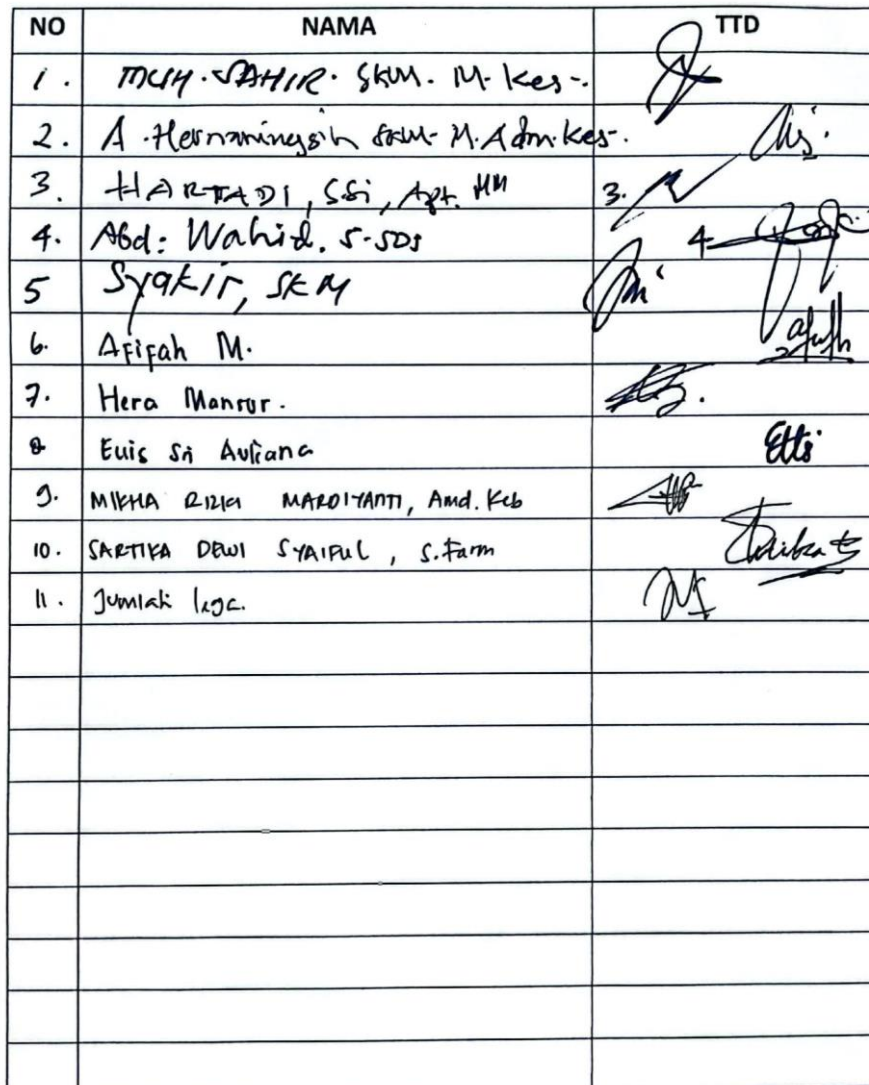 NO NAMA TTD
1. MUH. SAHIR. SKM. M. Kes-.
2. A. Hernaningsih SKM- M. Adm. Kes-.
3. HARTADI, SSi, Apt. MM 3.
4. Abd: Wahid. S-SOS 4-
5 Syakir, SKM
6. Afifah M.
7. Hera Mansur.
8 Euis Sri Auliana
9. MIKHA MARDIYANTI, Amd. Keb
10. SARTIKA DEWI SYAIFUL, S. Farm
11. Jumiati